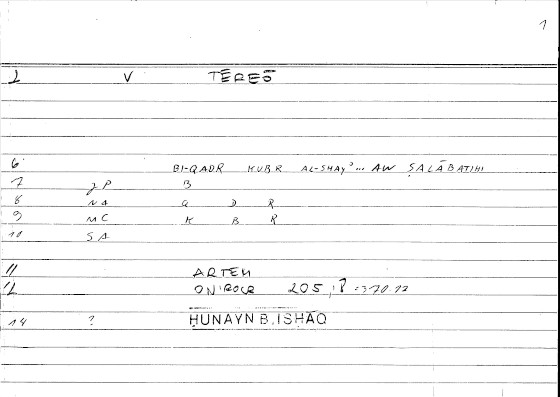 1
2 V TĒREŌ
6 BI-QADR KUBR AL-SHAYʾ... AW ṢALĀBATIHI
7 JP B
8 NA Q D R
9 MC K B R
10 SA
11 ARTEM
12 ONIROCR 205,
14 ? ḤUNAYN B. ISḤĀQ